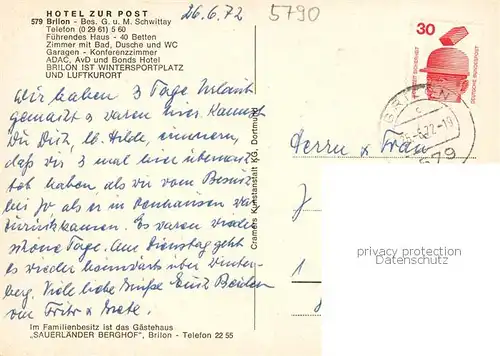 HOTEL ZUR POST
579 Brilon - Bes. G. u. M. Schwittay
Telefon (0 29 61) 5 60
Führendes Haus - 40 Betten
Zimmer mit Bad, Dusche und WC
Garagen - Konferenzzimmer
ADAC, AvD und Bonds Hotel
BRILON IST WINTERSPORTPLATZ
UND LUFTKURORT
26.6.72
5790
30
JEDERZEIT SICHERHEIT
DEUTSCHE BUNDESPOST
BRILON
579
Wir haben 3 Tage Urlaub
gemacht u waren hier. Kannst
Du Dich, lb. Hilde, erinnern,
daß wir 3 mal hier übernach
tet haben, als wir vom Besuch
bei Jo als er in
zurückkamen. Es waren wieder
schöne Tage. Am Dienstag geht
es wieder heimwärts über Winter-
berg. Viele liebe Grüße Euch Beiden
von Fritz u. Grete.
Herrn u. Frau
Cramers Kunstanstalt KG, Dortmund
privacy protection
watermark
Im Familienbesitz ist das Gästehaus
„SAUERLÄNDER BERGHOF", Brilon - Telefon 22 55